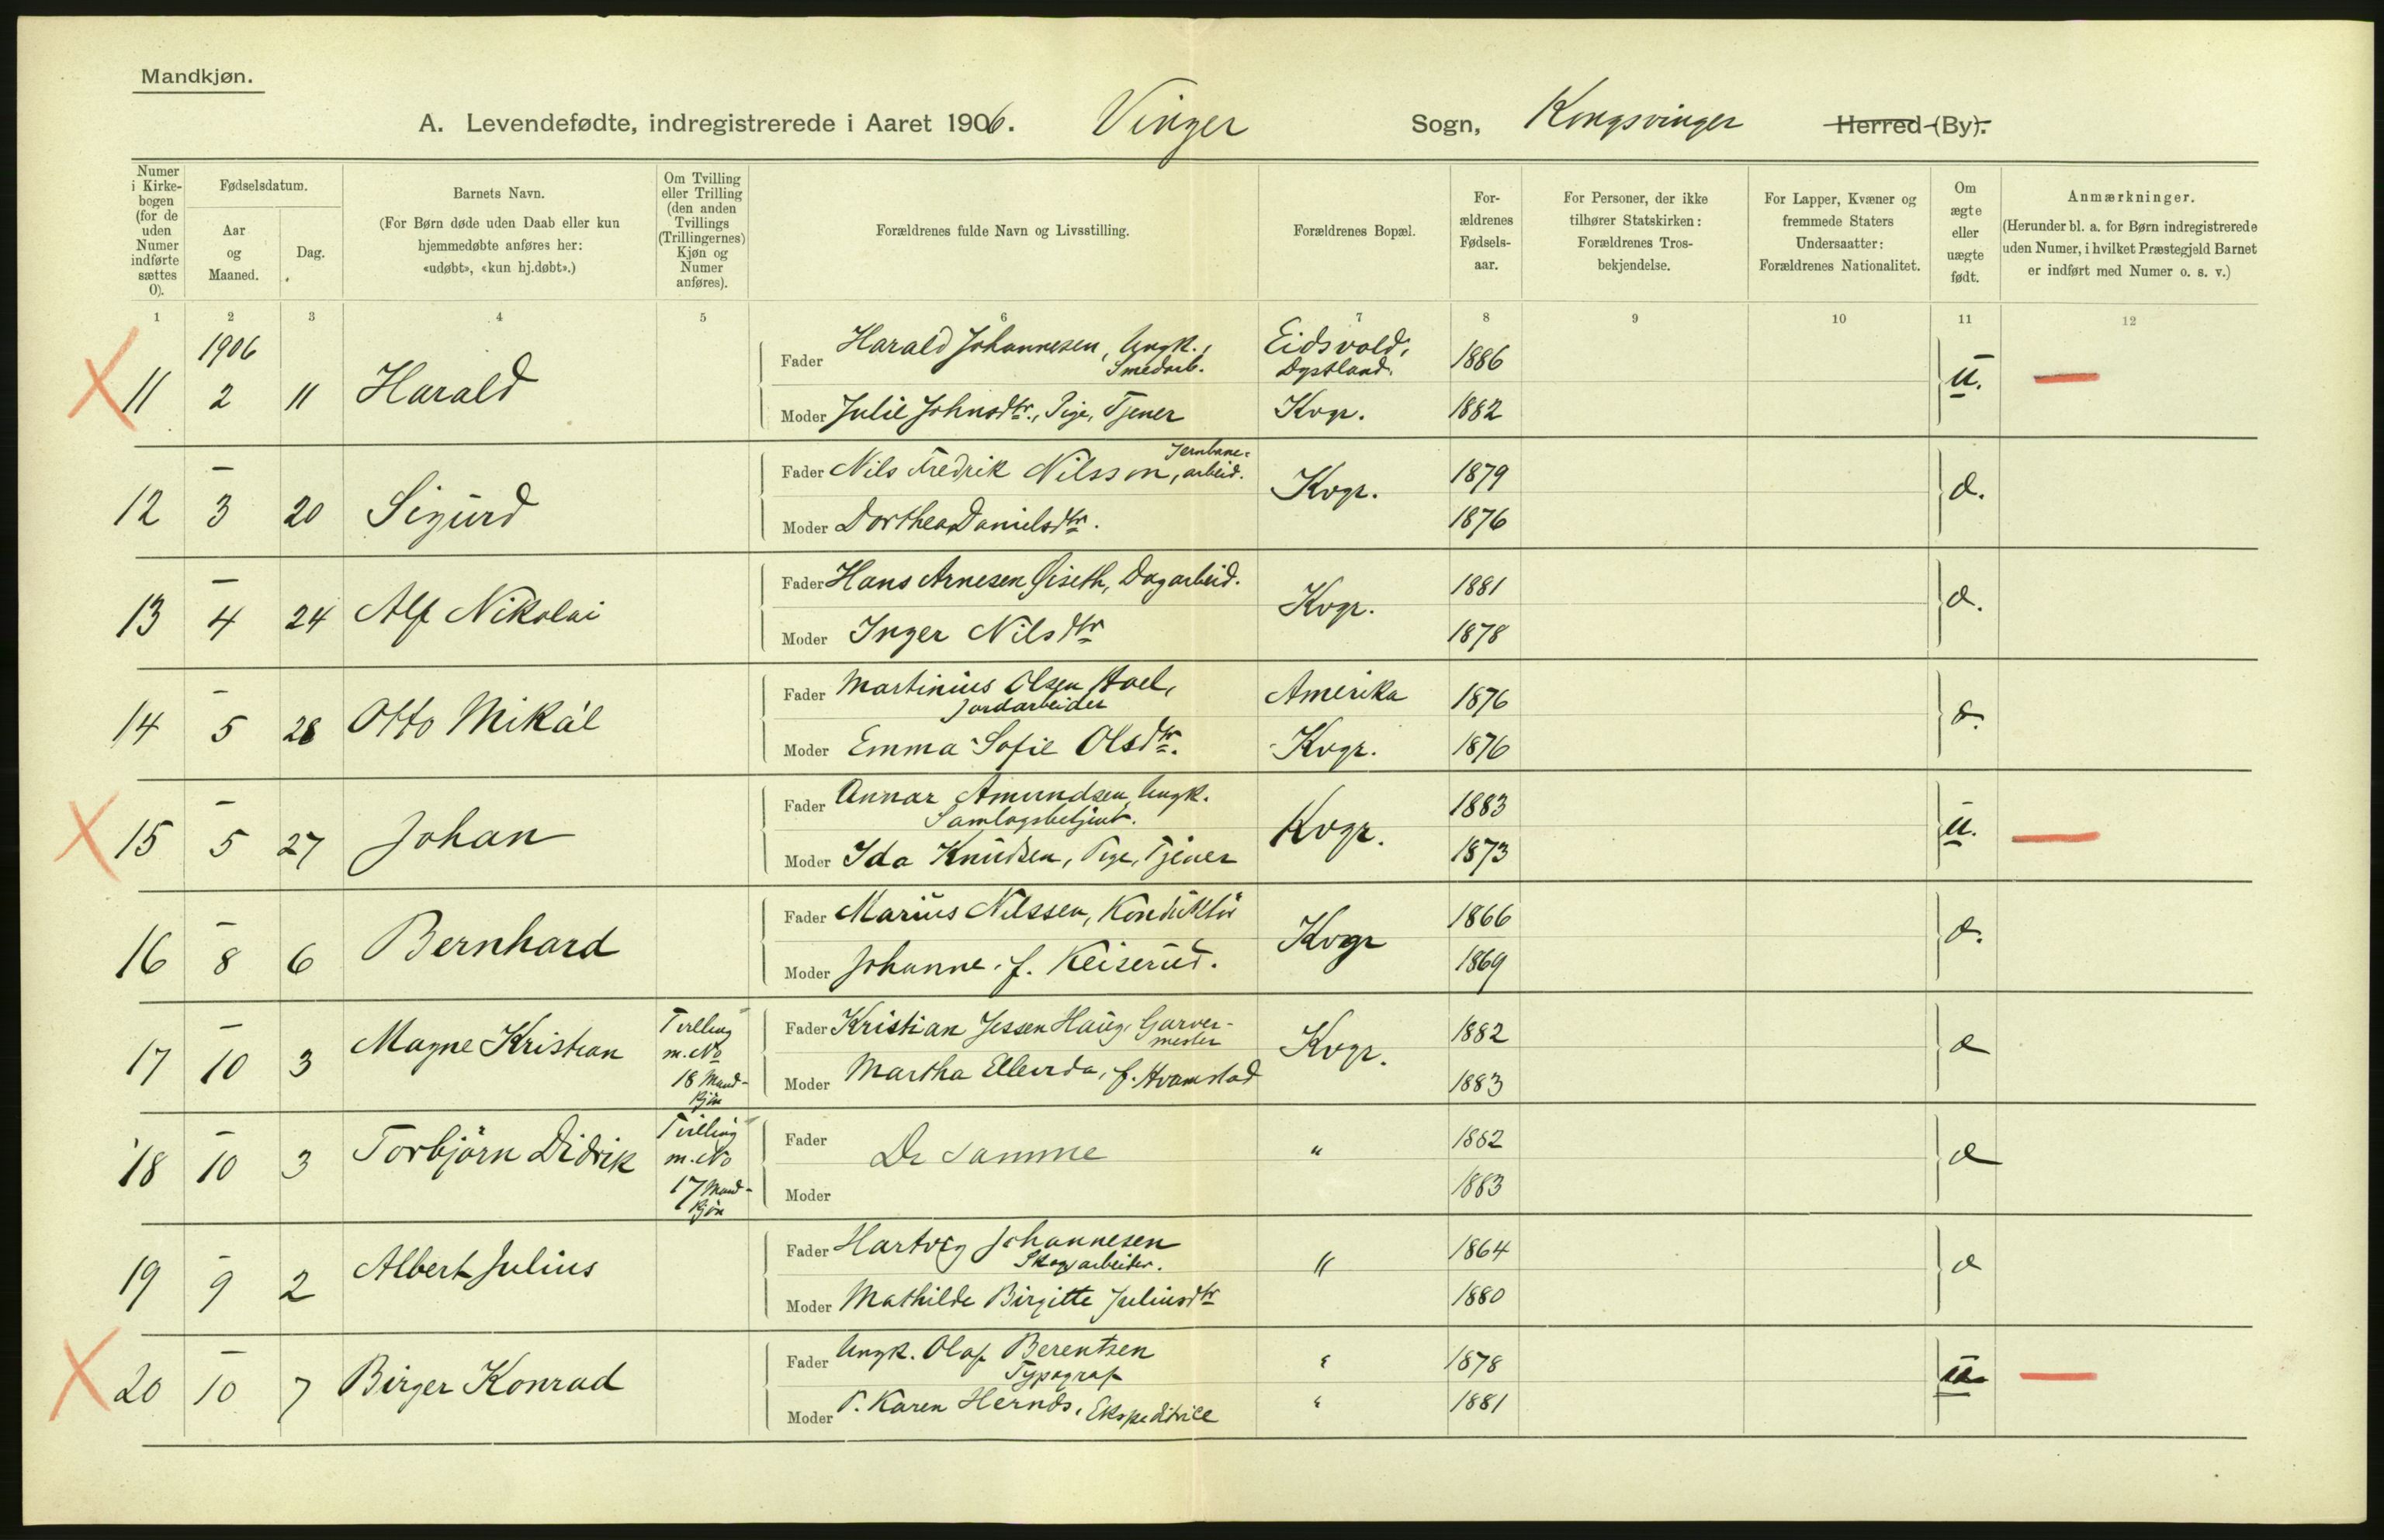 Mandkjøn.
A. Levendefødte, indregistrerede i Aaret 1906. Vinger Sogn, Kongsvinger Herred (By).
Numer i Kirkebogen (for de uden Numer indførte sættes 0).
Fødselsdatum.
Aar og Maaned.
Dag.
Barnets Navn.
(For Børn døde uden Daab eller kun hjemmedøbte anføres her: «udøbt», «kun hj.døbt».)
Om Tvilling eller Trilling (den anden Tvillings (Trillingernes) Kjøn og Numer anføres).
Forældrenes fulde Navn og Livsstilling.
Forældrenes Bopæl.
Forældrenes Fødselsaar.
For Personer, der ikke tilhører Statskirken: Forældrenes Trosbekjendelse.
For Lapper, Kvæner og fremmede Staters Undersaatter: Forældrenes Nationalitet.
Om ægte eller uægte født.
Anmærkninger.
(Herunder bl. a. for Børn indregistrerede uden Numer, i hvilket Præstegjeld Barnet er indført med Numer o. s. v.)
1 2 3 4 5 6 7 8 9 10 11 12
1906
11 2 11 Harald
Fader Harald Johannesen, Ungk., Smedarb. Eidsvold, 1886 u.
Moder Julie Johnsdtr., Pige, Tjener Kvgr. 1882
12 – 3 20 Sigurd
Fader Nils Fredrik Nilsson, Jernbanearbeid. Kvgr. 1879 æ.
Moder Dorthea Danielsdtr. 1876
13 – 4 24 Alf Nikolai
Fader Hans Arnesen Øiseth, Dagarbeid. Kvgr. 1881 æ.
Moder Inger Nilsdtr 1878
14 – 5 28 Otto Mikal
Fader Martinius Olsen Hoel, Jordarbeider Amerika 1876 æ.
Moder Emma Sofie Olsdtr. Kvgr. 1876
15 – 5 27 Johan
Fader Annar Amundsen, Ungk. Samlagsbetjent. Kvgr. 1883 u.
Moder Ida Knudsen, Pige, Tjener 1873
16 – 8 6 Bernhard
Fader Marius Nilssen, Konduktör Kvgr 1866 æ.
Moder Johanne f. Keiserud. 1869
17 – 10 3 Magne Kristian Tvilling m. No 18 Mandkjön
Fader Kristian Jessen Haug, Garvermester Kvgr. 1882 æ
Moder Martha Ellevrda, f. Hvamstad 1883
18 – 10 3 Torbjörn Didrik Tvilling m. No 17 Mandkjön
Fader De samme " 1882 æ
Moder 1883
19 – 9 2 Albert Julius
Fader Hartvig Johannesen Skogsarbeider. " 1864 æ
Moder Mathilde Birgitte Juliusdtr 1880
20 – 10 7 Birger Konrad
Fader Ungk. Olaf Berentsen Typograf " 1878 u
Moder P. Karen Hernds, Ekspeditrice " 1881